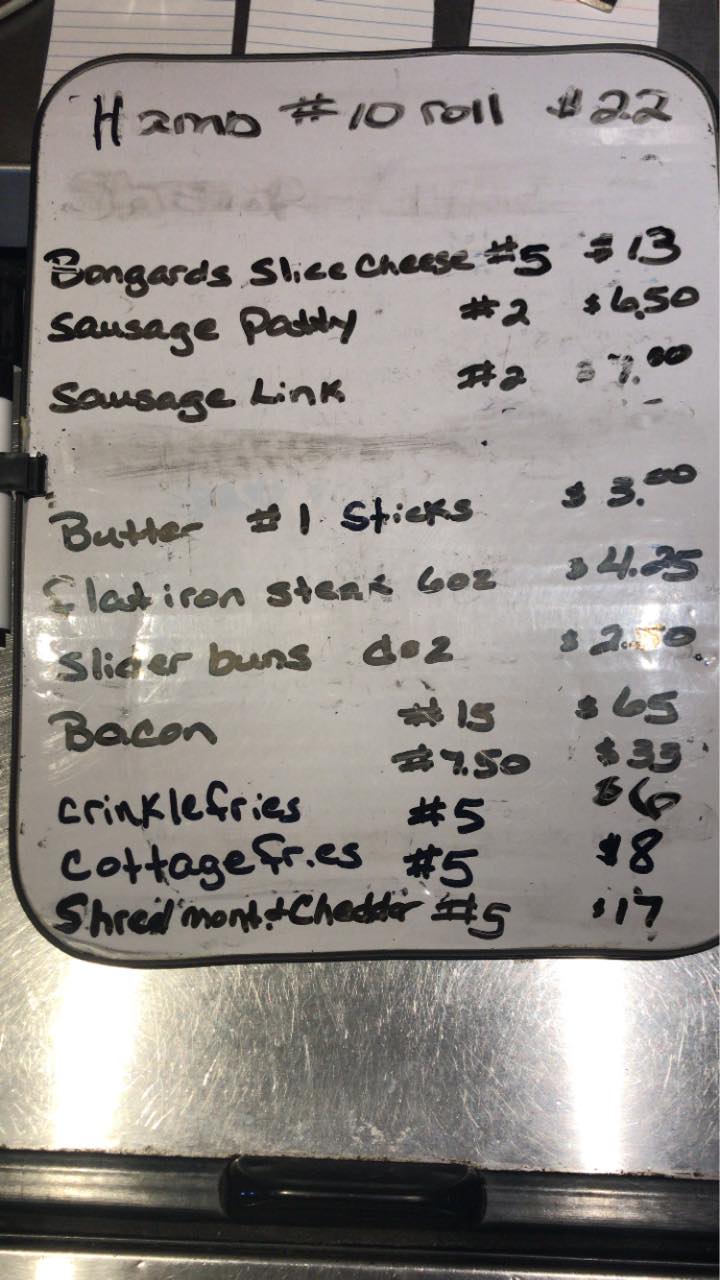 Hamb #10 roll $22
Bongards Slice Cheese #5 $13
Sausage Patty #2 $6.50
Sausage Link #2 $7.00
Butter #1 Sticks $3.00
Flat iron steak 6oz $4.25
Slider buns doz $2.50
Bacon #15 $65
#7.50 $33
crinkle fries #5 $6
cottage fries #5 $8
Shred mont.+Cheddar #5 $17